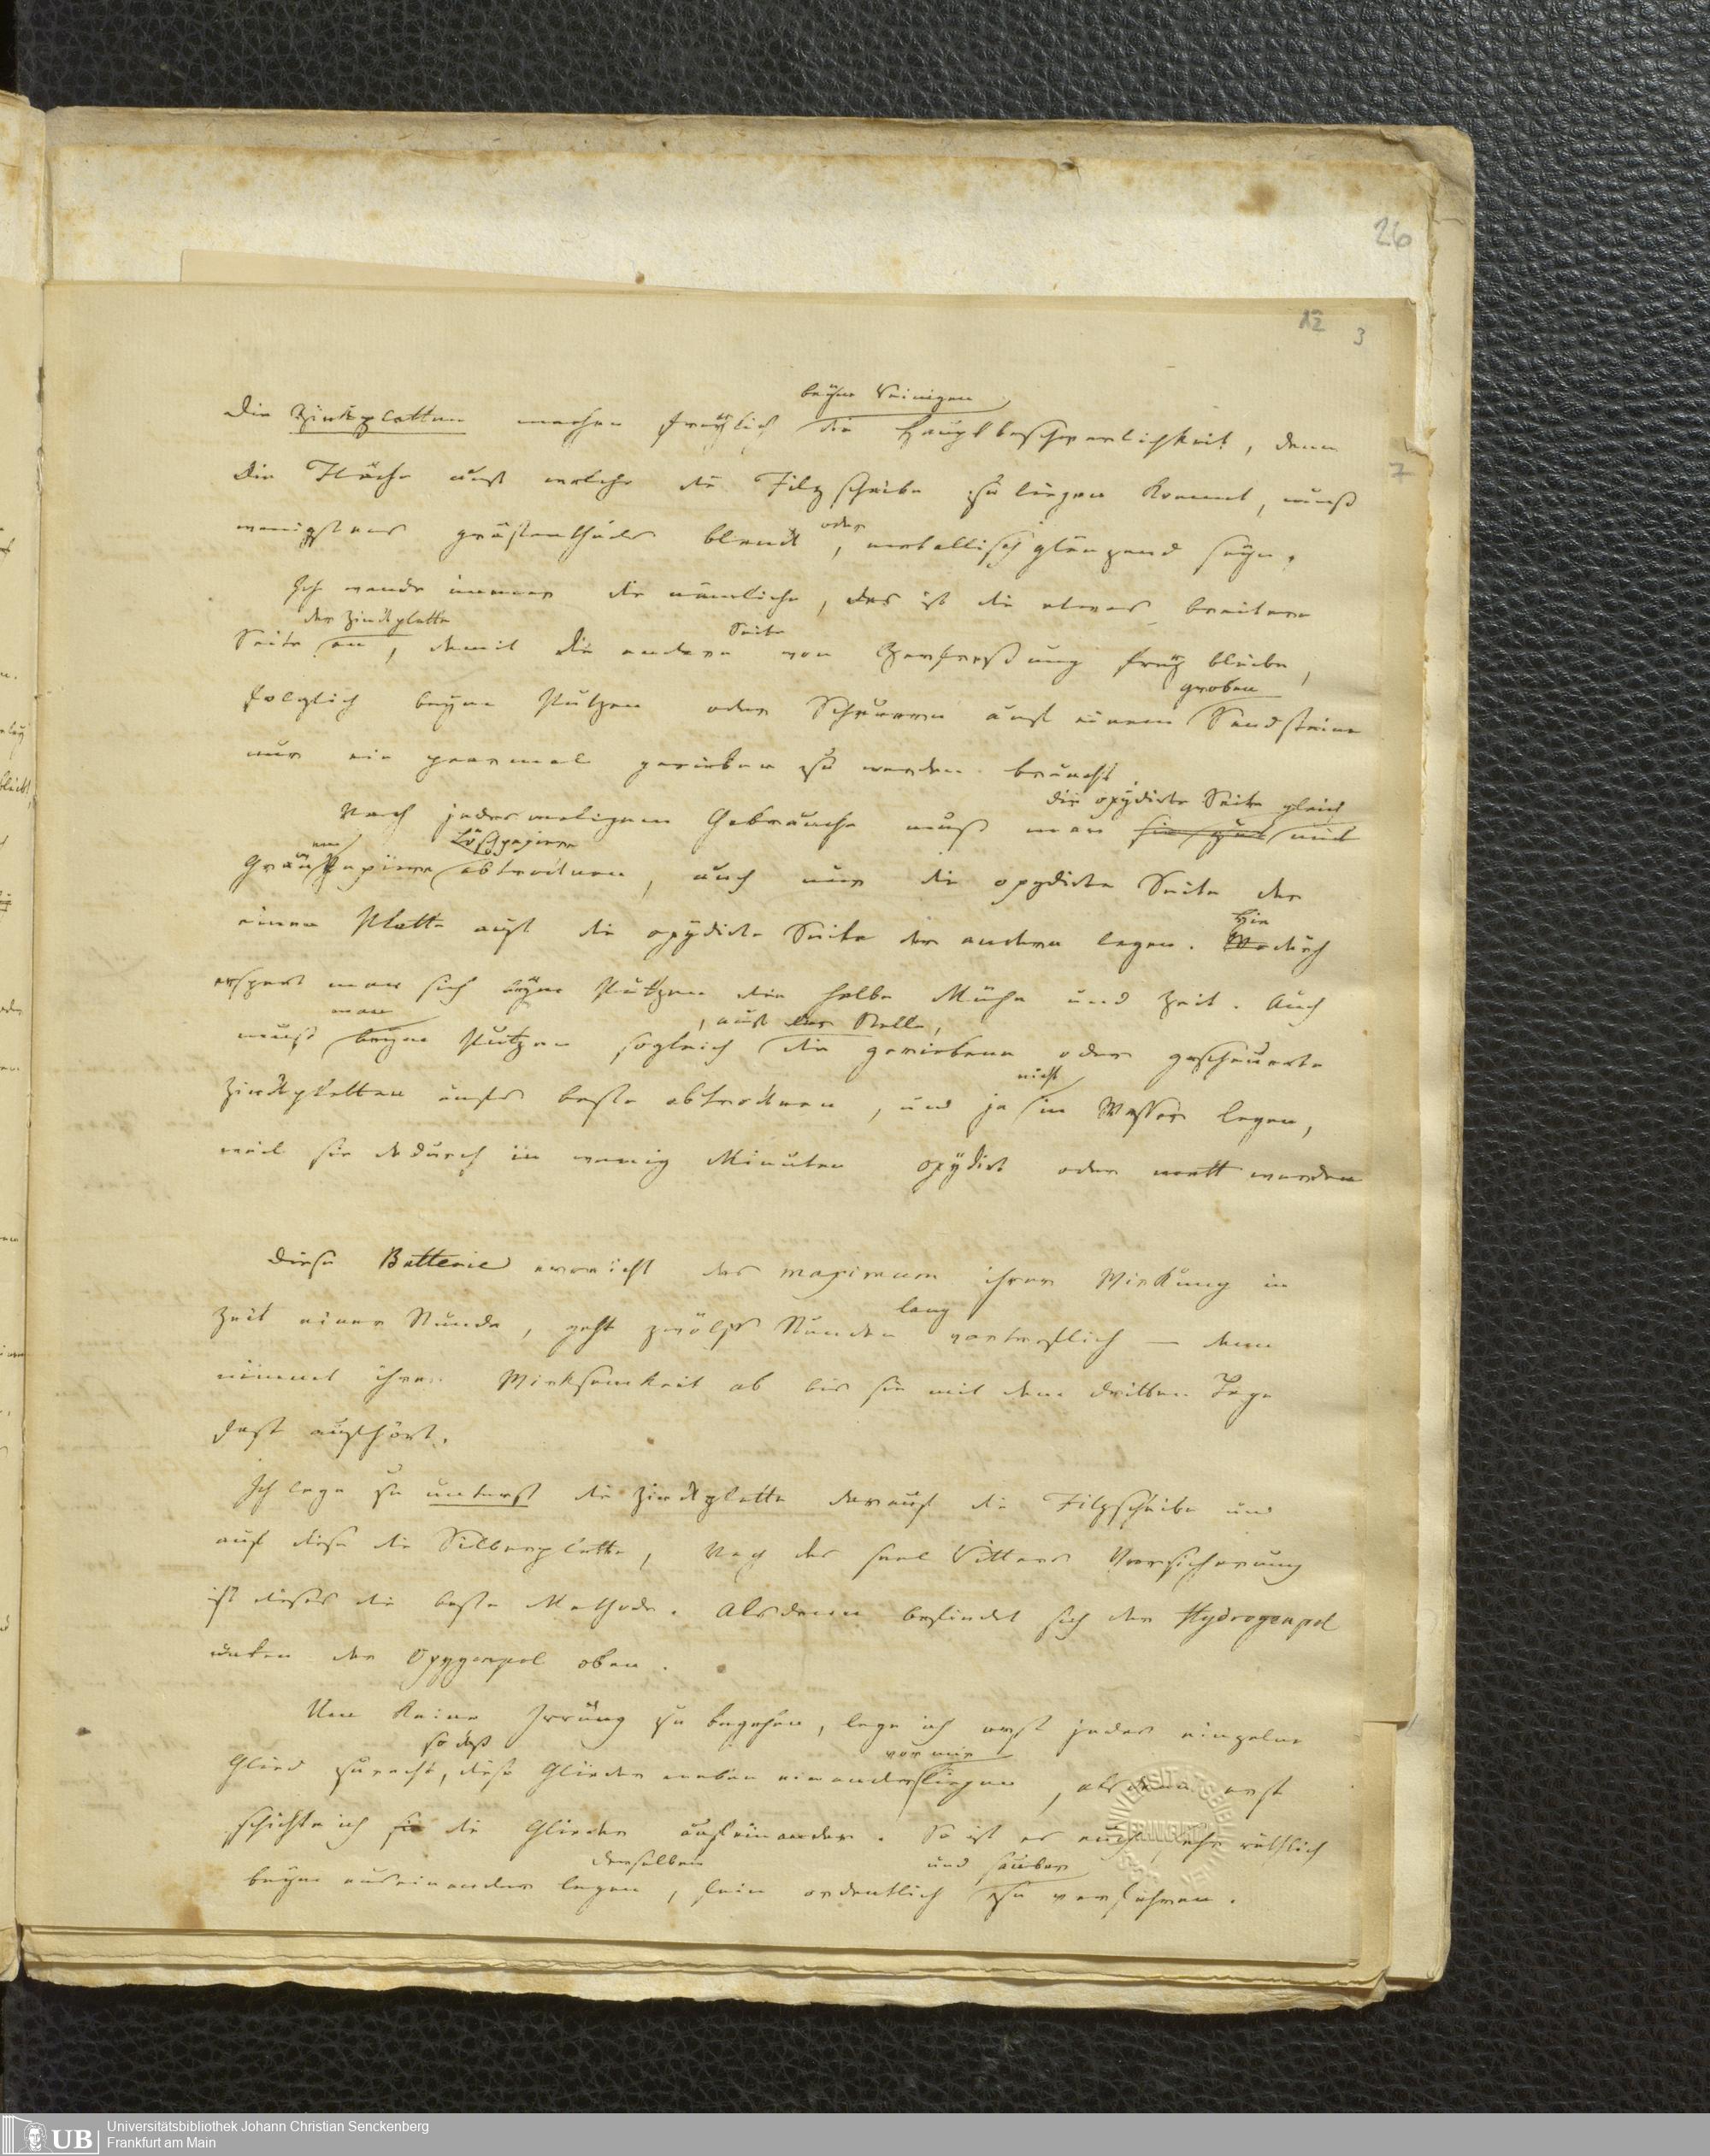 26
12 3
7
beym Reinigen
Die Zinkplatten machen freylich die Hauptbeschwerlichkeit, denn
die Fläche auf welche die Filzscheibe zu liegen kommt, muß
oder
wenigstens gröstentheils blank, metallisch glänzend seyn.
Ich wende immer die nämliche, das ist die etwas breitere
der Zinkplatte Seite
Seite an, damit die andere von Zerfressung frey bleibe,
groben
folglich beym Putzen oder Scheuern auf einem Sandsteine
nur ein paarmal gerieben zu werden braucht.
die oxydirte Seite gleich
Nach jedesmaligem Gebrauche muß man sie gut mit
Löschpapiere
Graupapiere abtrocknen, auch nur die oxydirte Seite der
Hie
einen Platte auf die oxydirte Seite der andern legen. Wodurch
erspart man sich beym Putzen die halbe Mühe und Zeit. Auch
man , auf der Stelle,
muß beym Putzen sogleich die geriebene oder gescheuerte
nicht
Zinkplatten aufs beste abtrocknen, und ja in Wasser legen,
weil sie dadurch in wenig Minuten oxydirt oder matt werden
Diese Batterie erreicht das maximum ihrer Wirkung in
lang
Zeit einer Stunde, geht zwölf Stunden vortreflich — dann
nimmt ihre Wirksamkeit ab bis sie mit dem dritten Tage
fast aufhört.
Ich lege zu unterst die Zinkplatte darauf die Filzscheibe und
auf diese die Silberplatte, Nach des seel Ritters Versicherung
ist dieses die beste Methode. Alsdann befindet sich der Hydrogenpol
unten der Oxygenpol oben.
Um keine Irrung zu begehen, lege ich erst jedes einzelne
so daß vor mir
Glied zurecht, diese Glieder neben einander liegen, alsdann erst
schichte ich sie die Glieder aufeinander. So ist es auch sehr räthlich
derselben und sauber
beym auseinander legen, fein ordentlich zu verfahren.
UB
Universitätsbibliothek Johann Christian Senckenberg
Frankfurt am Main